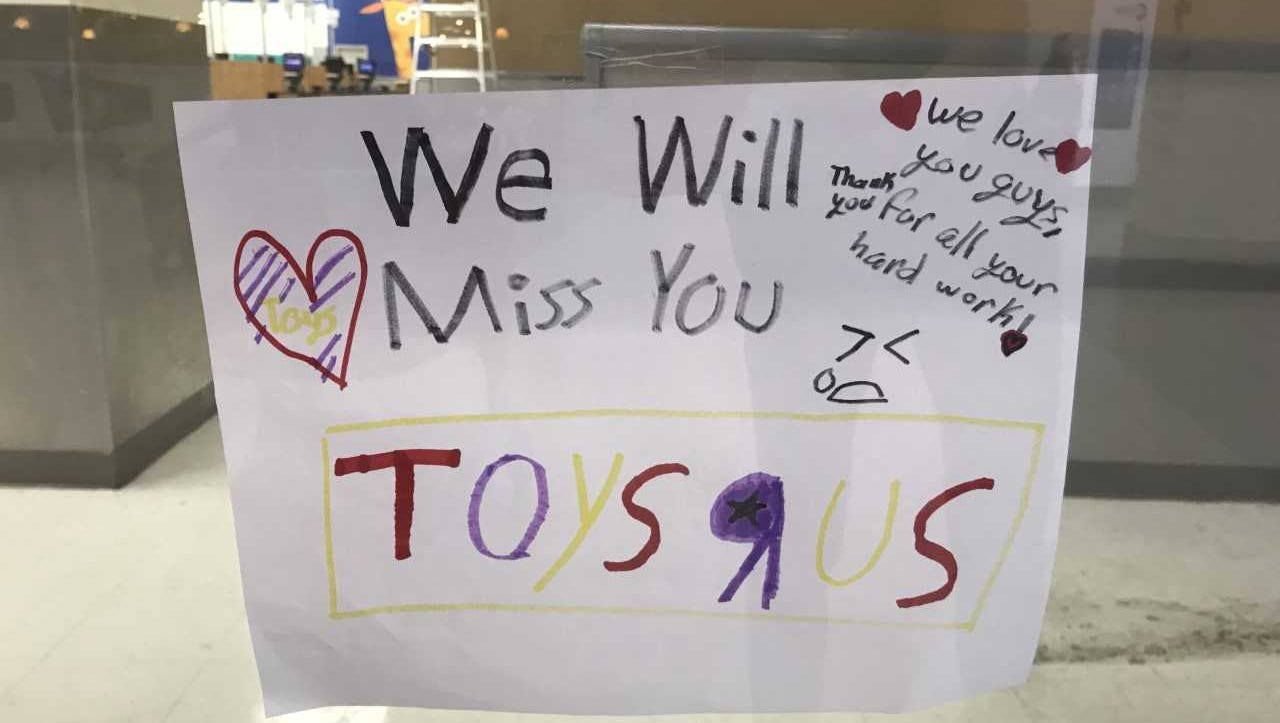 We Will
Miss You
we love
you guys,
Thank
you for all your
hard work!
Toys
TOYS R US